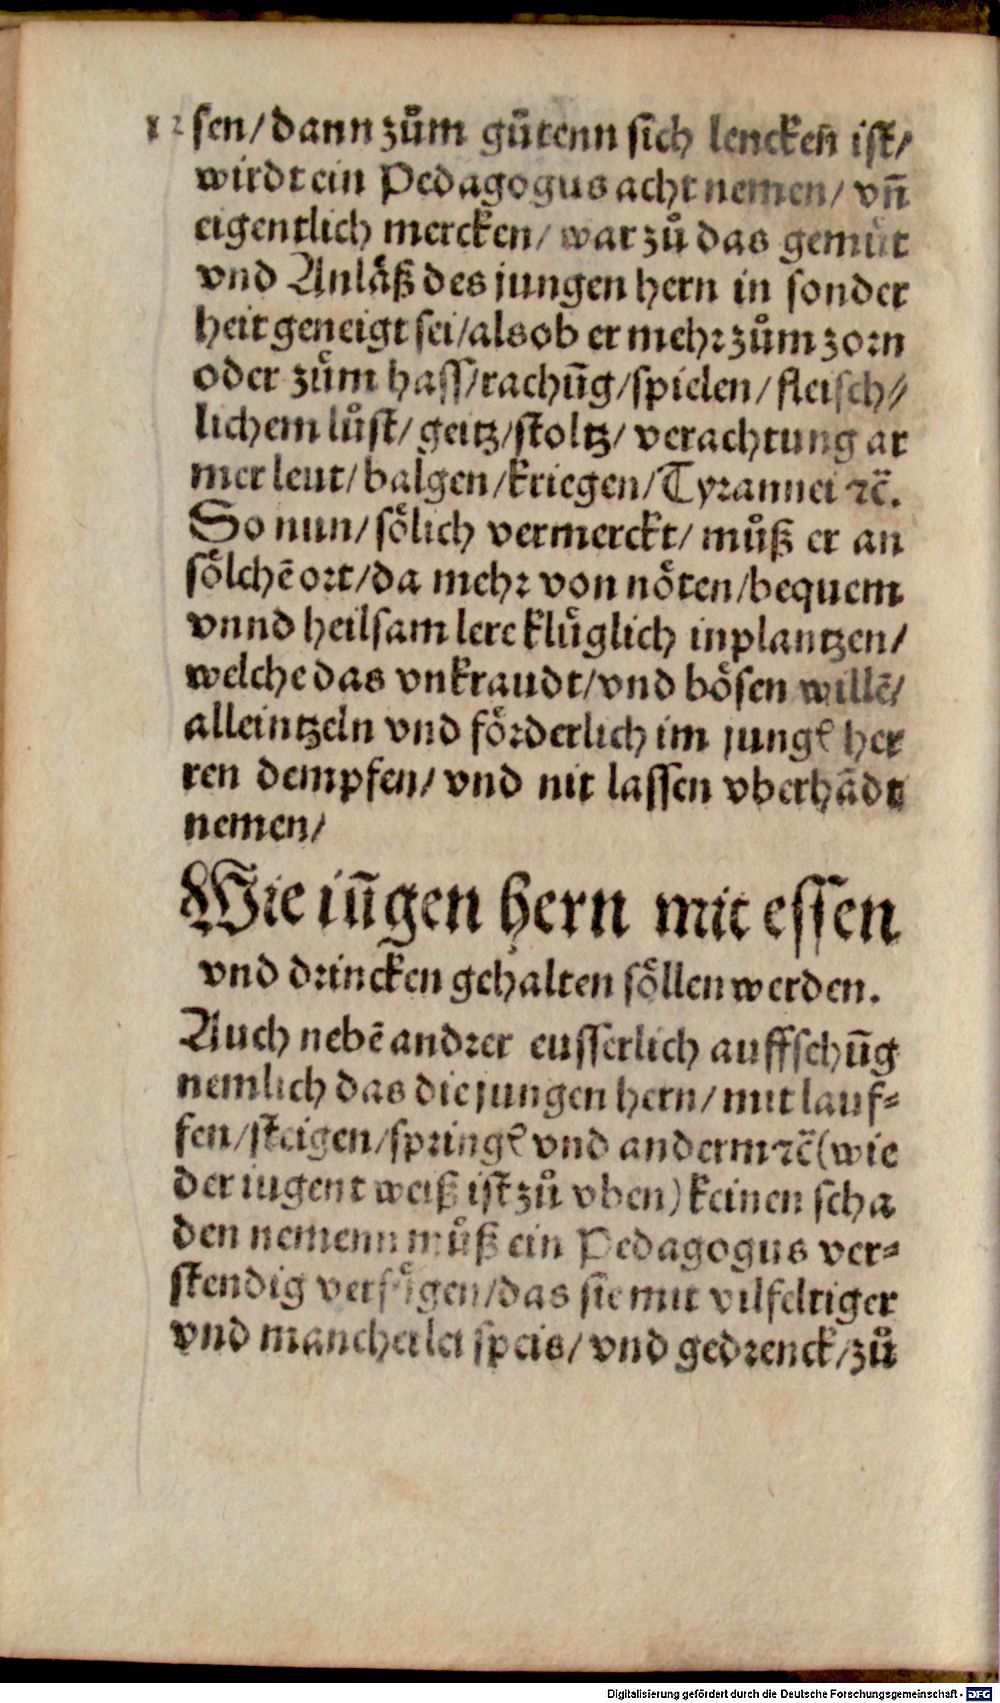 sen/dann zům gůtenn sich lenckeñ ist/
wirdt ein Pedagogus acht nemen/ vñ
eigentlich mercken/ war zů das gemüt
vnd Anläß des jungen hern in sonder
heit geneigt sei/als ob er mehr zům zorn
oder zům hass/rachūg/spielen/ fleisch//
lichem lůst/ geitz/stoltz/ verachtung ar
mer leut/ balgen/kriegen/Tyrannei ꝛc̄.
So nun/ sölich vermerckt/ můß er an
sölchē ort/da mehr von nöten/bequem
vnnd heilsam lere klüglich inplantzen/
welche das vnkraudt/vnd bösen willē/
alleintzeln vnd förderlich im jungẽ her
ren dempfen/ vnd nit lassen vberhādt
nemen/
Wie iūgen hern mit essen
vnd drincken gehalten söllen werden.
Auch nebē andrer eusserlich auffsehūg
nemlich das die jungen hern/ mit lauf-
fen/steigen/springẽ vnd anderm ꝛc̄(wie
der iugent weiß ist zů vben) keinen scha
den nemenn můß ein Pedagogus ver-
stendig verfügen/das sie mit vilfeltiger
vnd mancherlei speis/ vnd gedrenck/zů
Digitalisierung gefördert durch die Deutsche Forschungsgemeinschaft - DFG